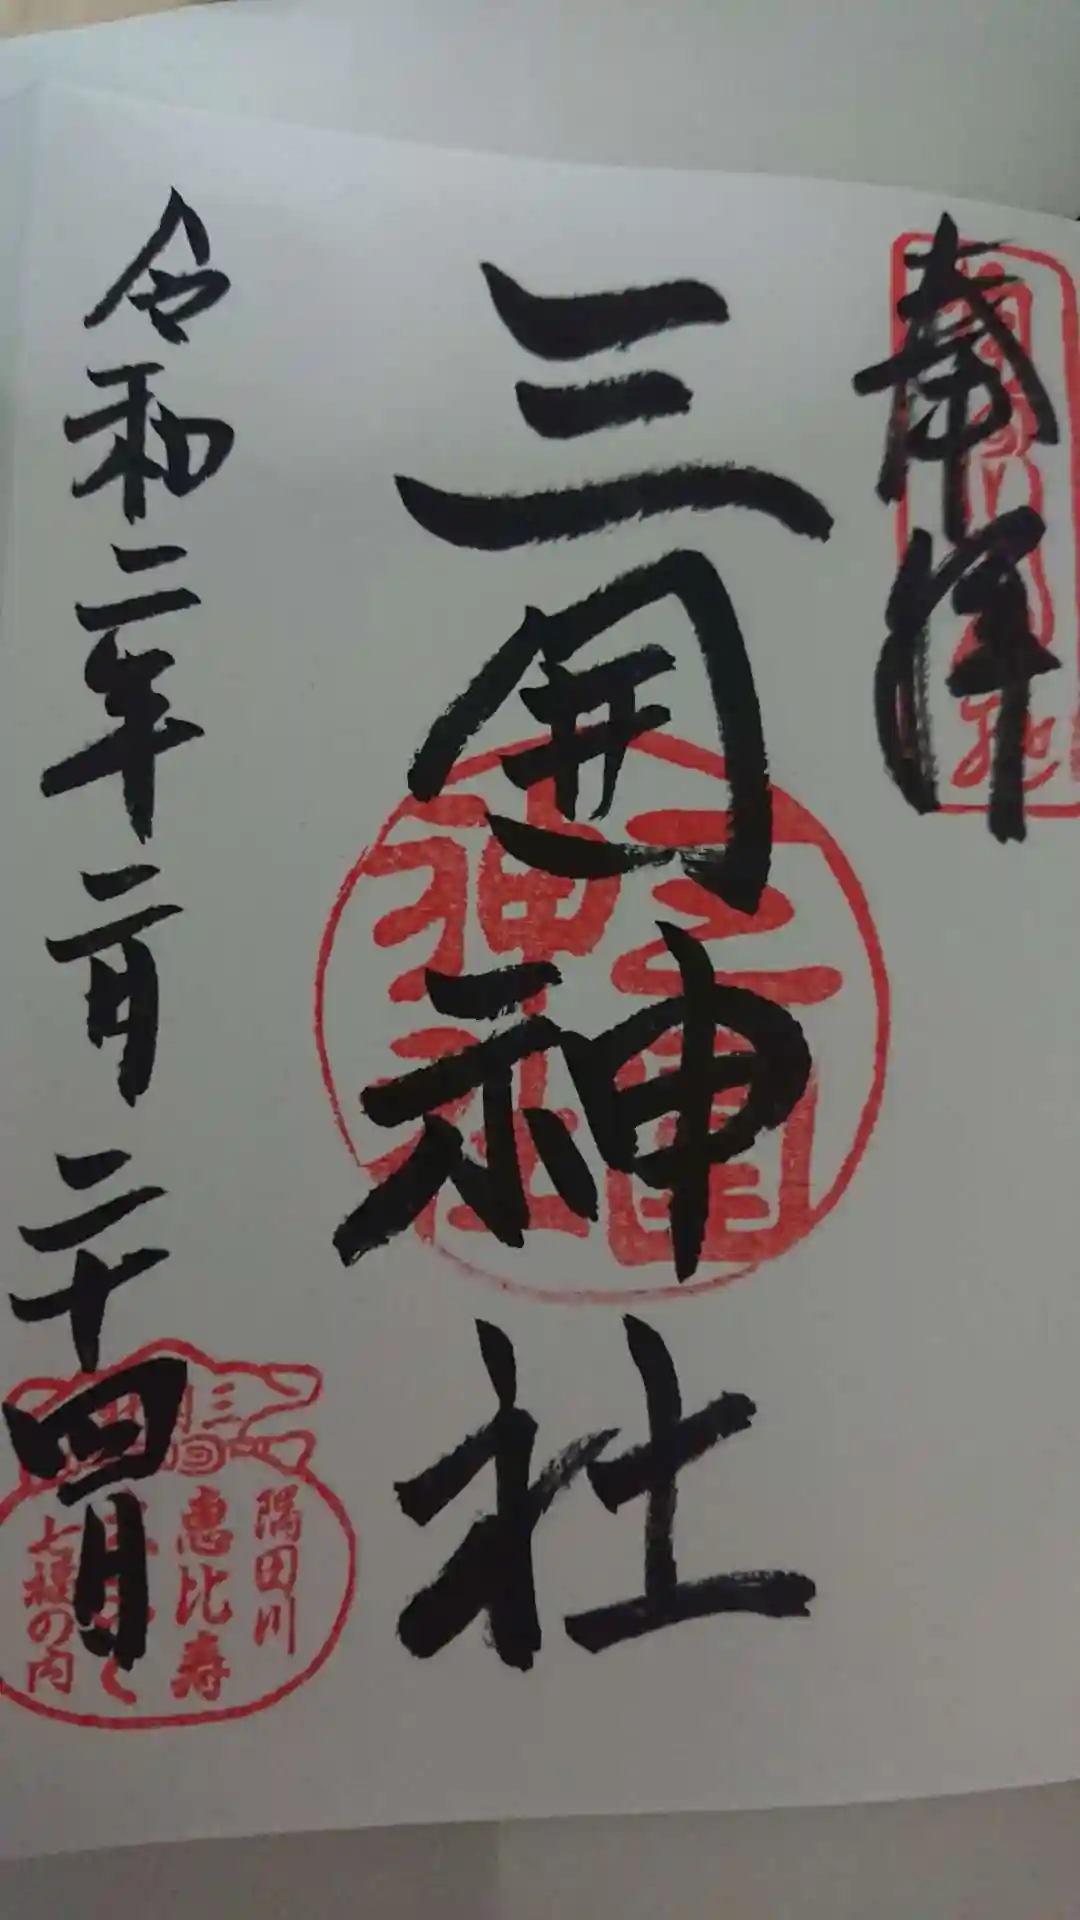 奉拝
三囲神社
三囲神社
令和二年二月二十四日
三囲
隅田川
恵比寿
七福の内